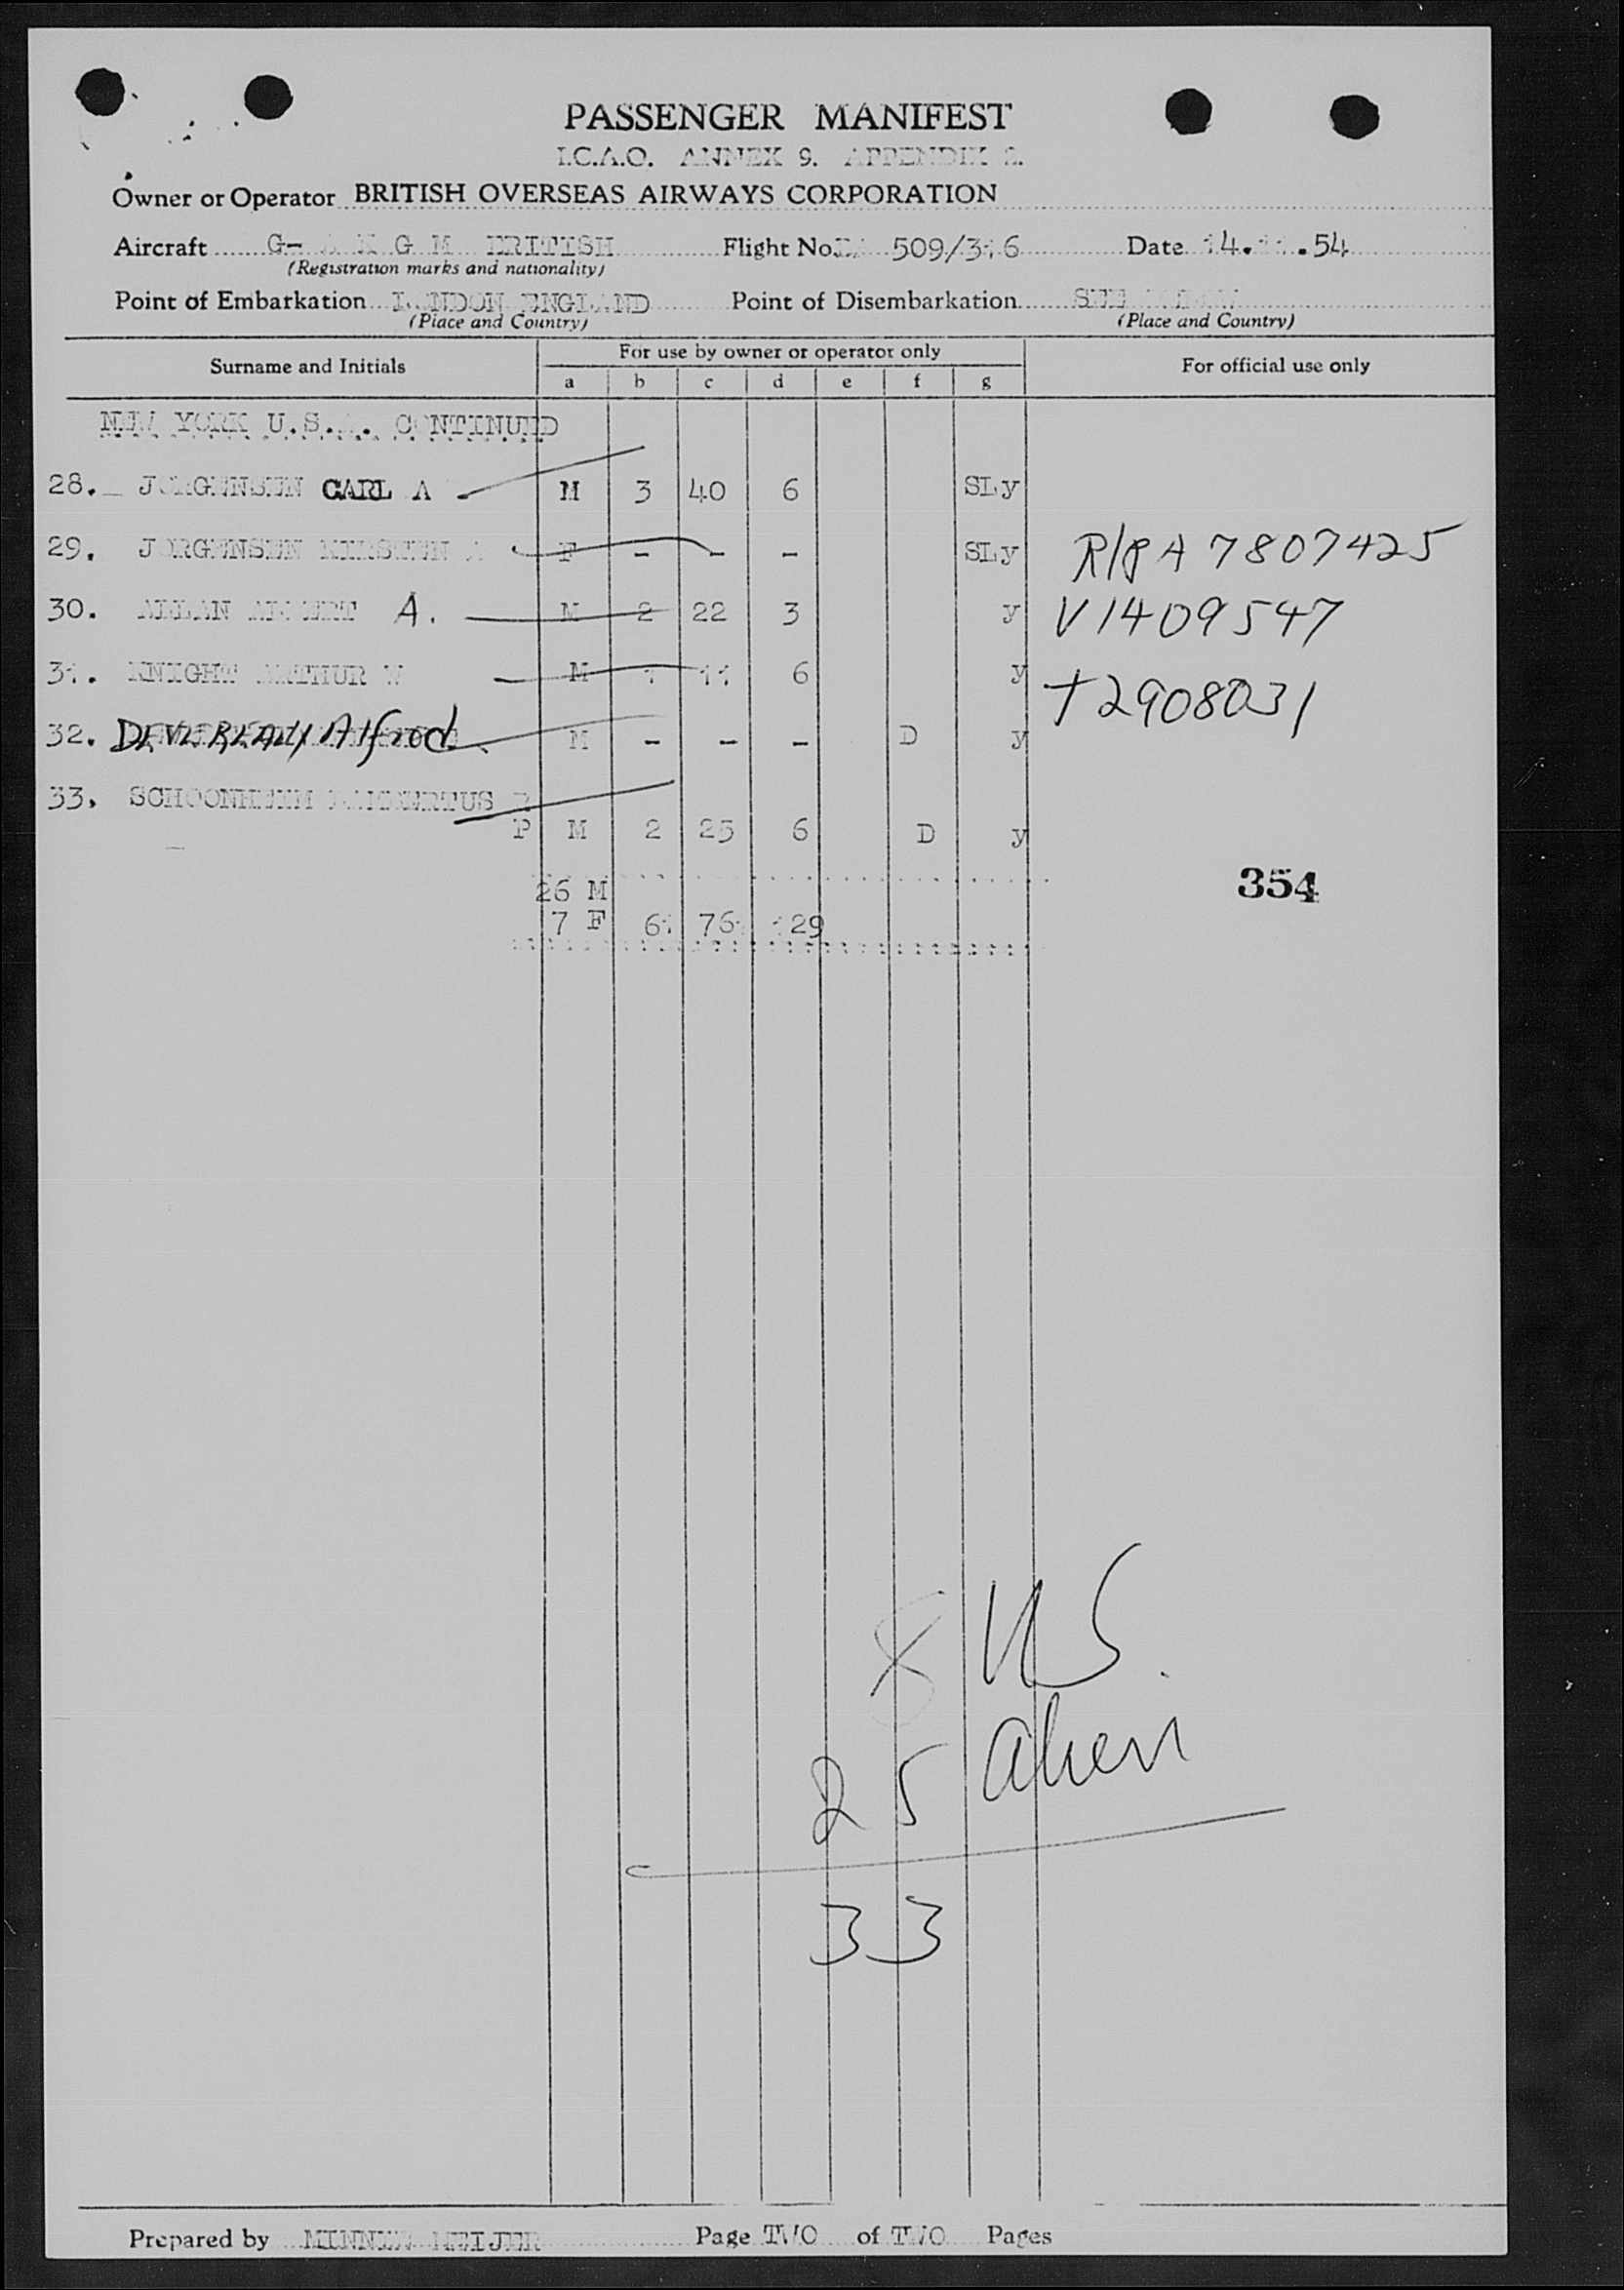 PASSENGER MANIFEST
I.C.A.O. ANNEX 9. APPENDIX 2.
Owner or Operator BRITISH OVERSEAS AIRWAYS CORPORATION
Aircraft G- A K G M BRITISH Flight No. 509/316 Date 14.11.54
(Registration marks and nationality)
Point of Embarkation LONDON ENGLAND Point of Disembarkation SEE BELOW
(Place and Country) (Place and Country)
Surname and Initials For use by owner or operator only For official use only
a b c d e f g
NEW YORK U.S.A. CONTINUED
28. JORGENSEN CARL A M 3 40 6 SLy
29. JORGENSEN KIRSTEN F - - - SLy R/P A 7807425
30. ALLAN A. M 2 22 3 y V1409547
31. KNIGHT ARTHUR W M 1 11 6 y T2908031
32. DEVEREAUX Alfred M - - - D y
33. SCHOONHEIM
P M 2 25 6 D y
354
26 M
7 F 61 761 129
8 US
25 alien
33
Prepared by MEIJER Page TWO of TWO Pages